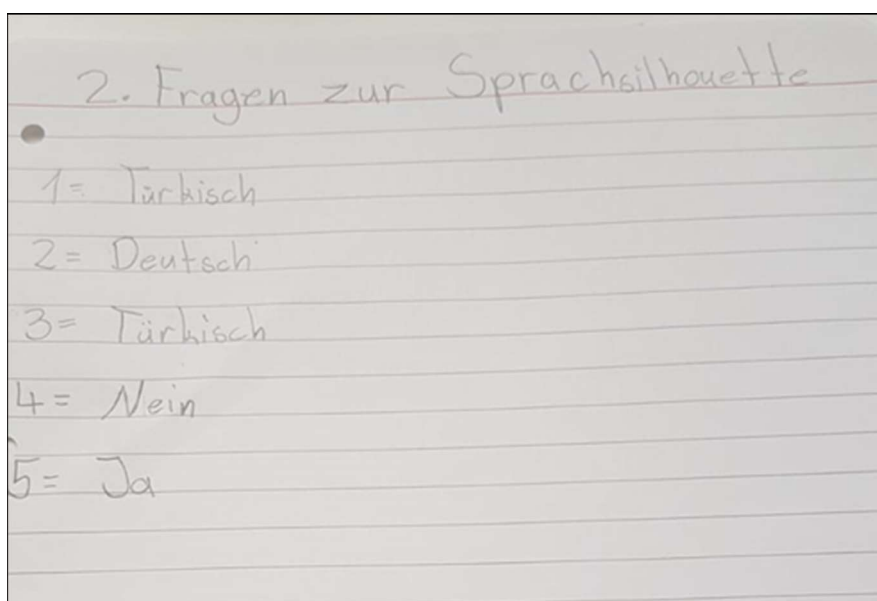 2. Fragen zur Sprachsilhouette
1= Türkisch
2= Deutsch
3= Türkisch
4= Nein
5= Ja